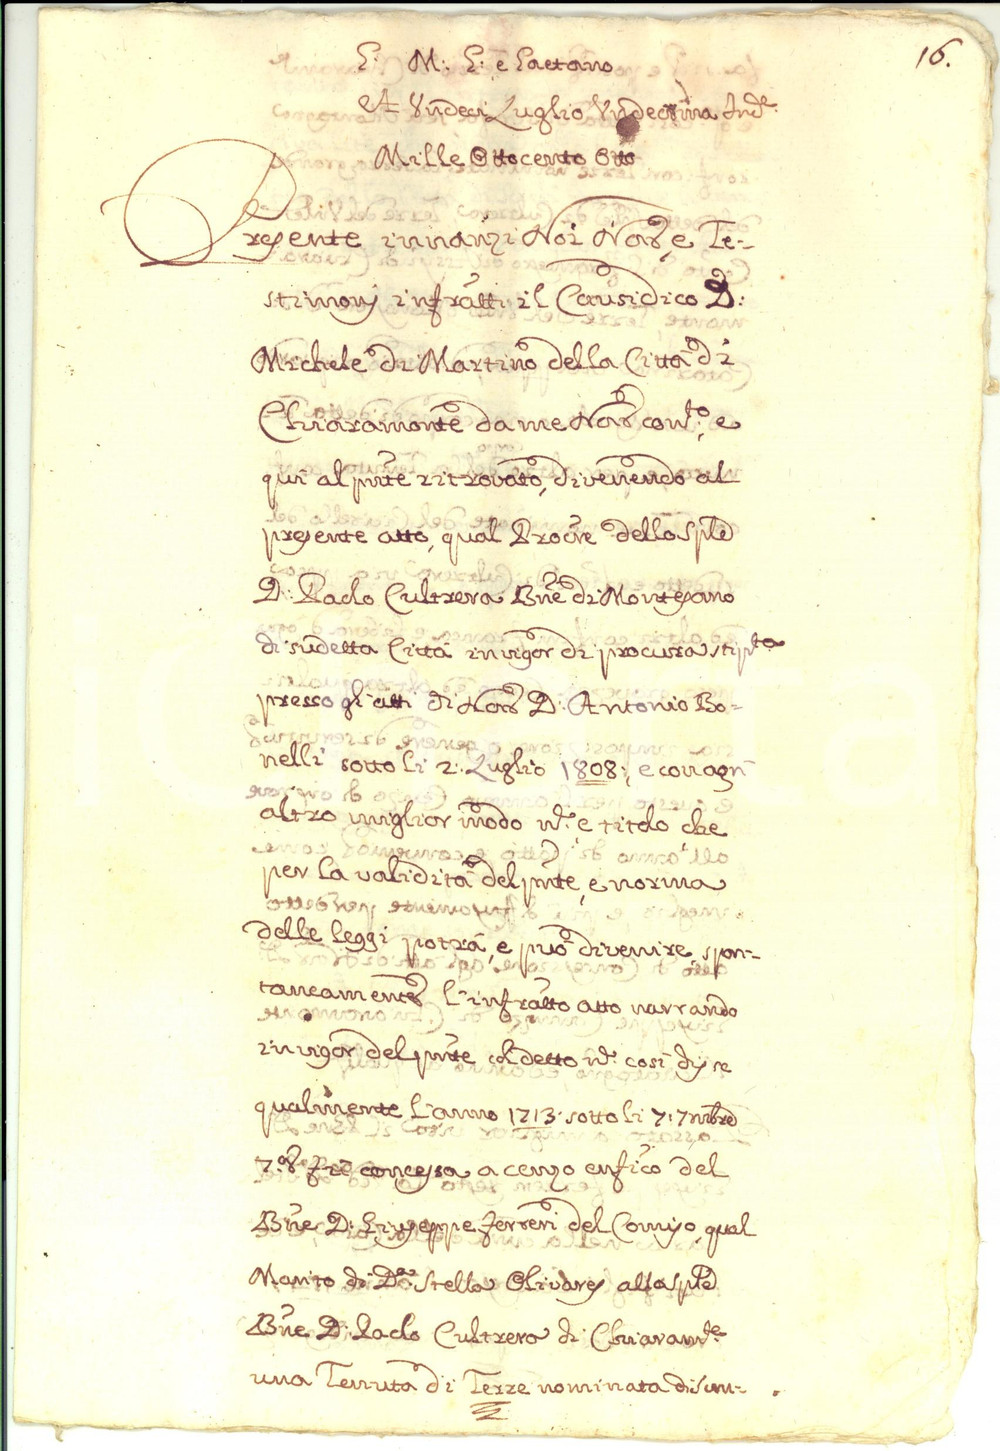 16.
G: M: G: e Gaetano
A Undeci Luglio Undecima Ind.e
Mille Ottocento Otto
Presente innanzi Noi Nor.o e Te-
stimonj infratti il Causidico D:
Michele di Martino della Città di
Chiaramonte da me Nor.o con.to, e
qui al pnte ritrovato, divenendo al
presente atto, qual Procre dello Sple
D: Paolo Cultrera Bne di Montesano
di sudetta Città in vigor di procura stip.ta
presso gli atti di Nor.o D: Antonio Bo-
nelli sotto li 2: Luglio 1808:, e con ogn'
altro miglior modo, e titolo che
per la validità del pnte, e norma
delle leggi potrà, e può divenire, spon-
taneamente l'infratto atto narrando
in vigor del pnte col detto così disse
qualmente l'anno 1713: sotto li 7: 7mbre
7.a fu concessa a cenzo enfico del
Bne D: Giuseppe Ferreri del Comiso, qual
Marito di D.a Stella Olivares allo Sple
Bne D: Paolo Cultrera di Chiaram.te
una Tenuta di Terre nominata di San-